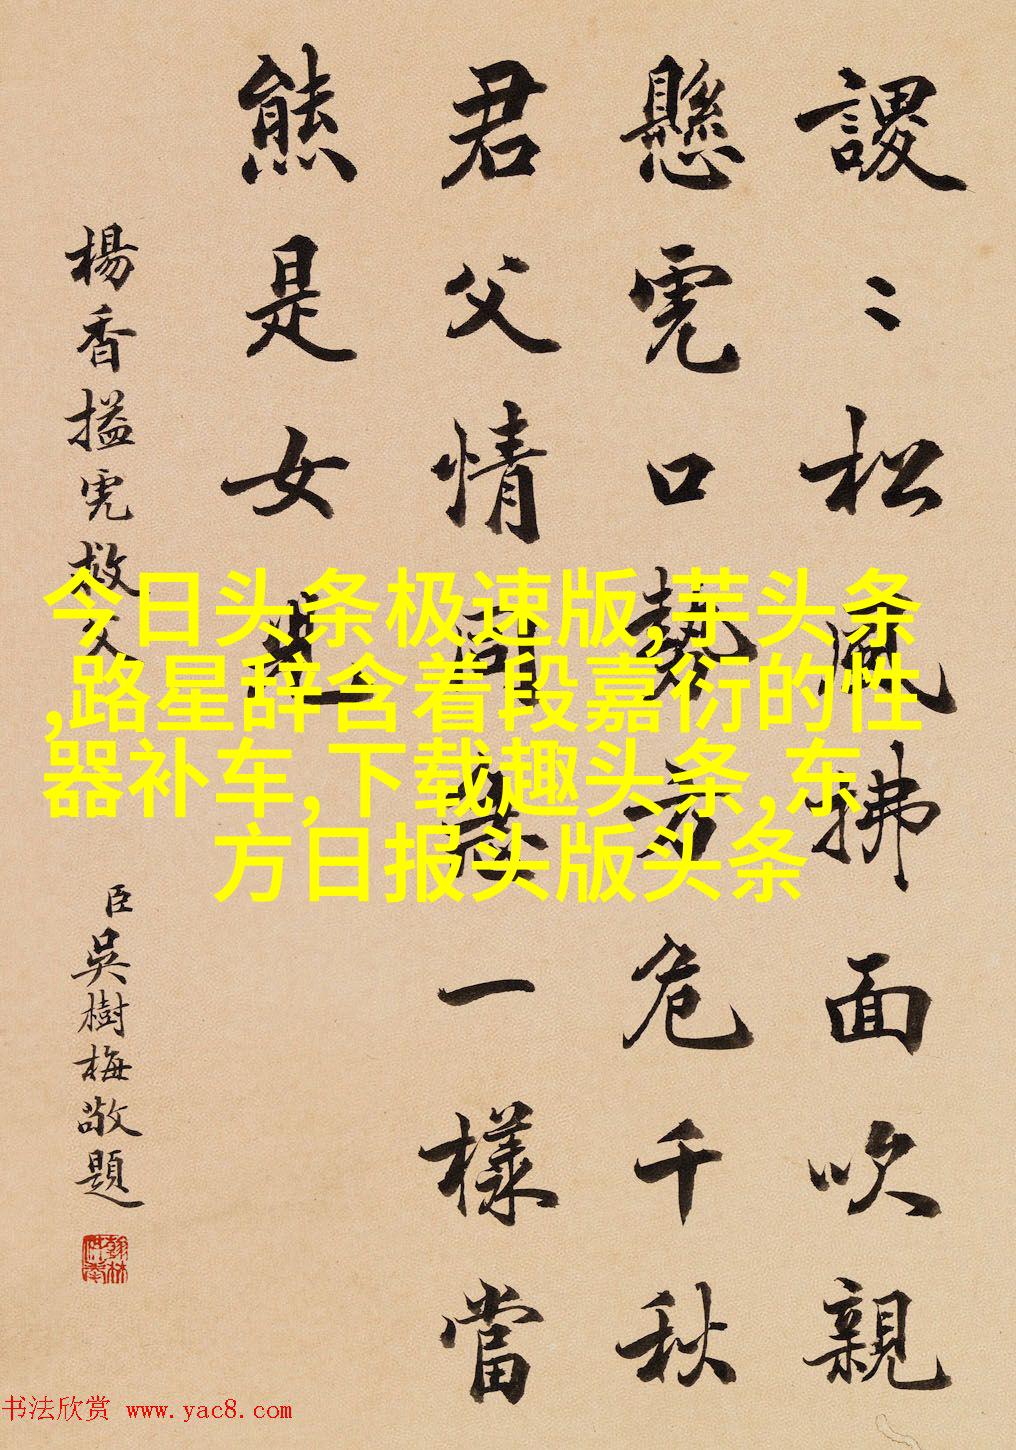 謖〻松風拂面吹親
懸虎口勢方危千秋
君父情同一樣當
熊是女
楊香搤虎救父
臣吳樹梅敬題
今日头条极速版,芋头条
,路星辞含着段嘉衍的性
器补车,下载趣头条,东
方日报头版头条
书法欣赏 www.yac8.com